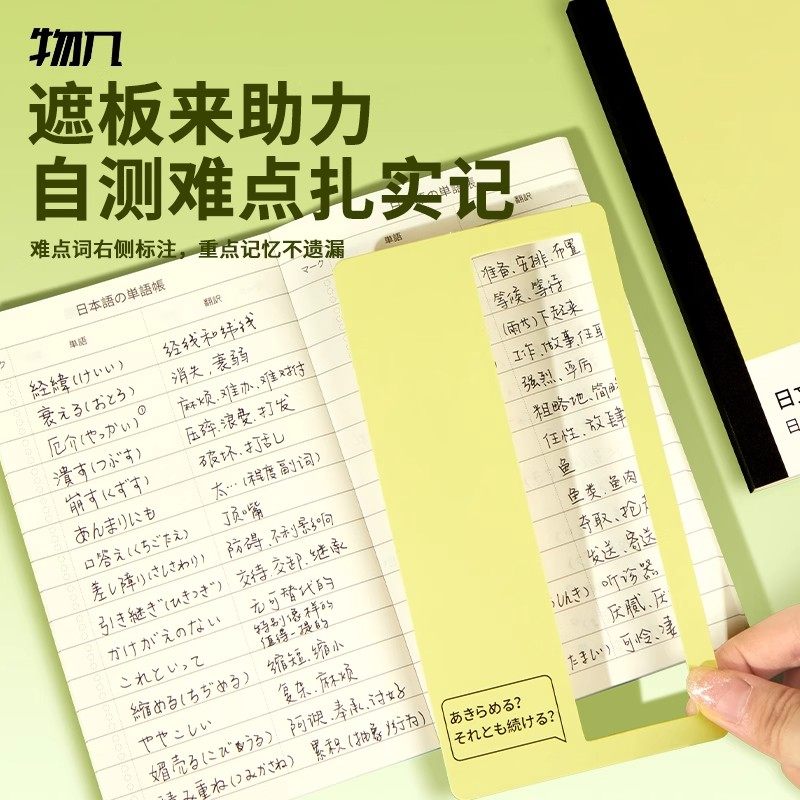 物几
遮板来助力
自测难点扎实记
难点词右侧标注，重点记忆不遗漏
日本語の単語帳
単語
翻訳
経緯(けいい) 经线和纬线
衰える(おとろ) 消失、衰弱
厄介(やっかい)① 麻烦、难办、难对付
潰す(つぶす) 压碎、浪费、打发
崩す(くずす) 破坏、打乱
あんまりにも 太…(程度副词)
口答え(くちごたえ) 顶嘴
差し障り(さしさわり) 防碍、不利影响
引き継ぎ(ひきつぎ) 交待、交卸、继承
かけがえのない 无可替代的
これといって 特别像样的
值得一提的
縮める(ちぢめる) 缩短、缩小
ややこしい 复杂、麻烦
媚売る(こびをうる) 阿谀、奉承、讨好
積み重ね(つみかさね) 累积(抽象/行为)
の単語帳
マーク
単語
翻訳
准备、安排、布置
等候、等待
(雨才)下起来
工作、做事、任
强烈、严厉
粗略地、简
任性、放肆
鱼
鱼类、鱼肉
夺取、抢
发送、寄送
しんき) 听诊器
厌腻、厌
たましい) 可怜、凄
あきらめる?
それとも続ける?
日
日